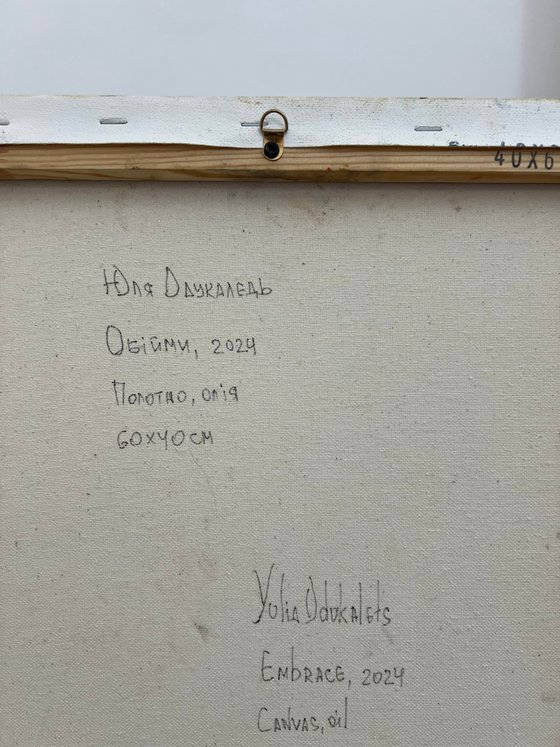 40X6
Юля Одукалець
Обійми, 2024
Полотно, олія
60X40 см
Yulia Odukalets
EMBRACE, 2024
CANVAS, oil